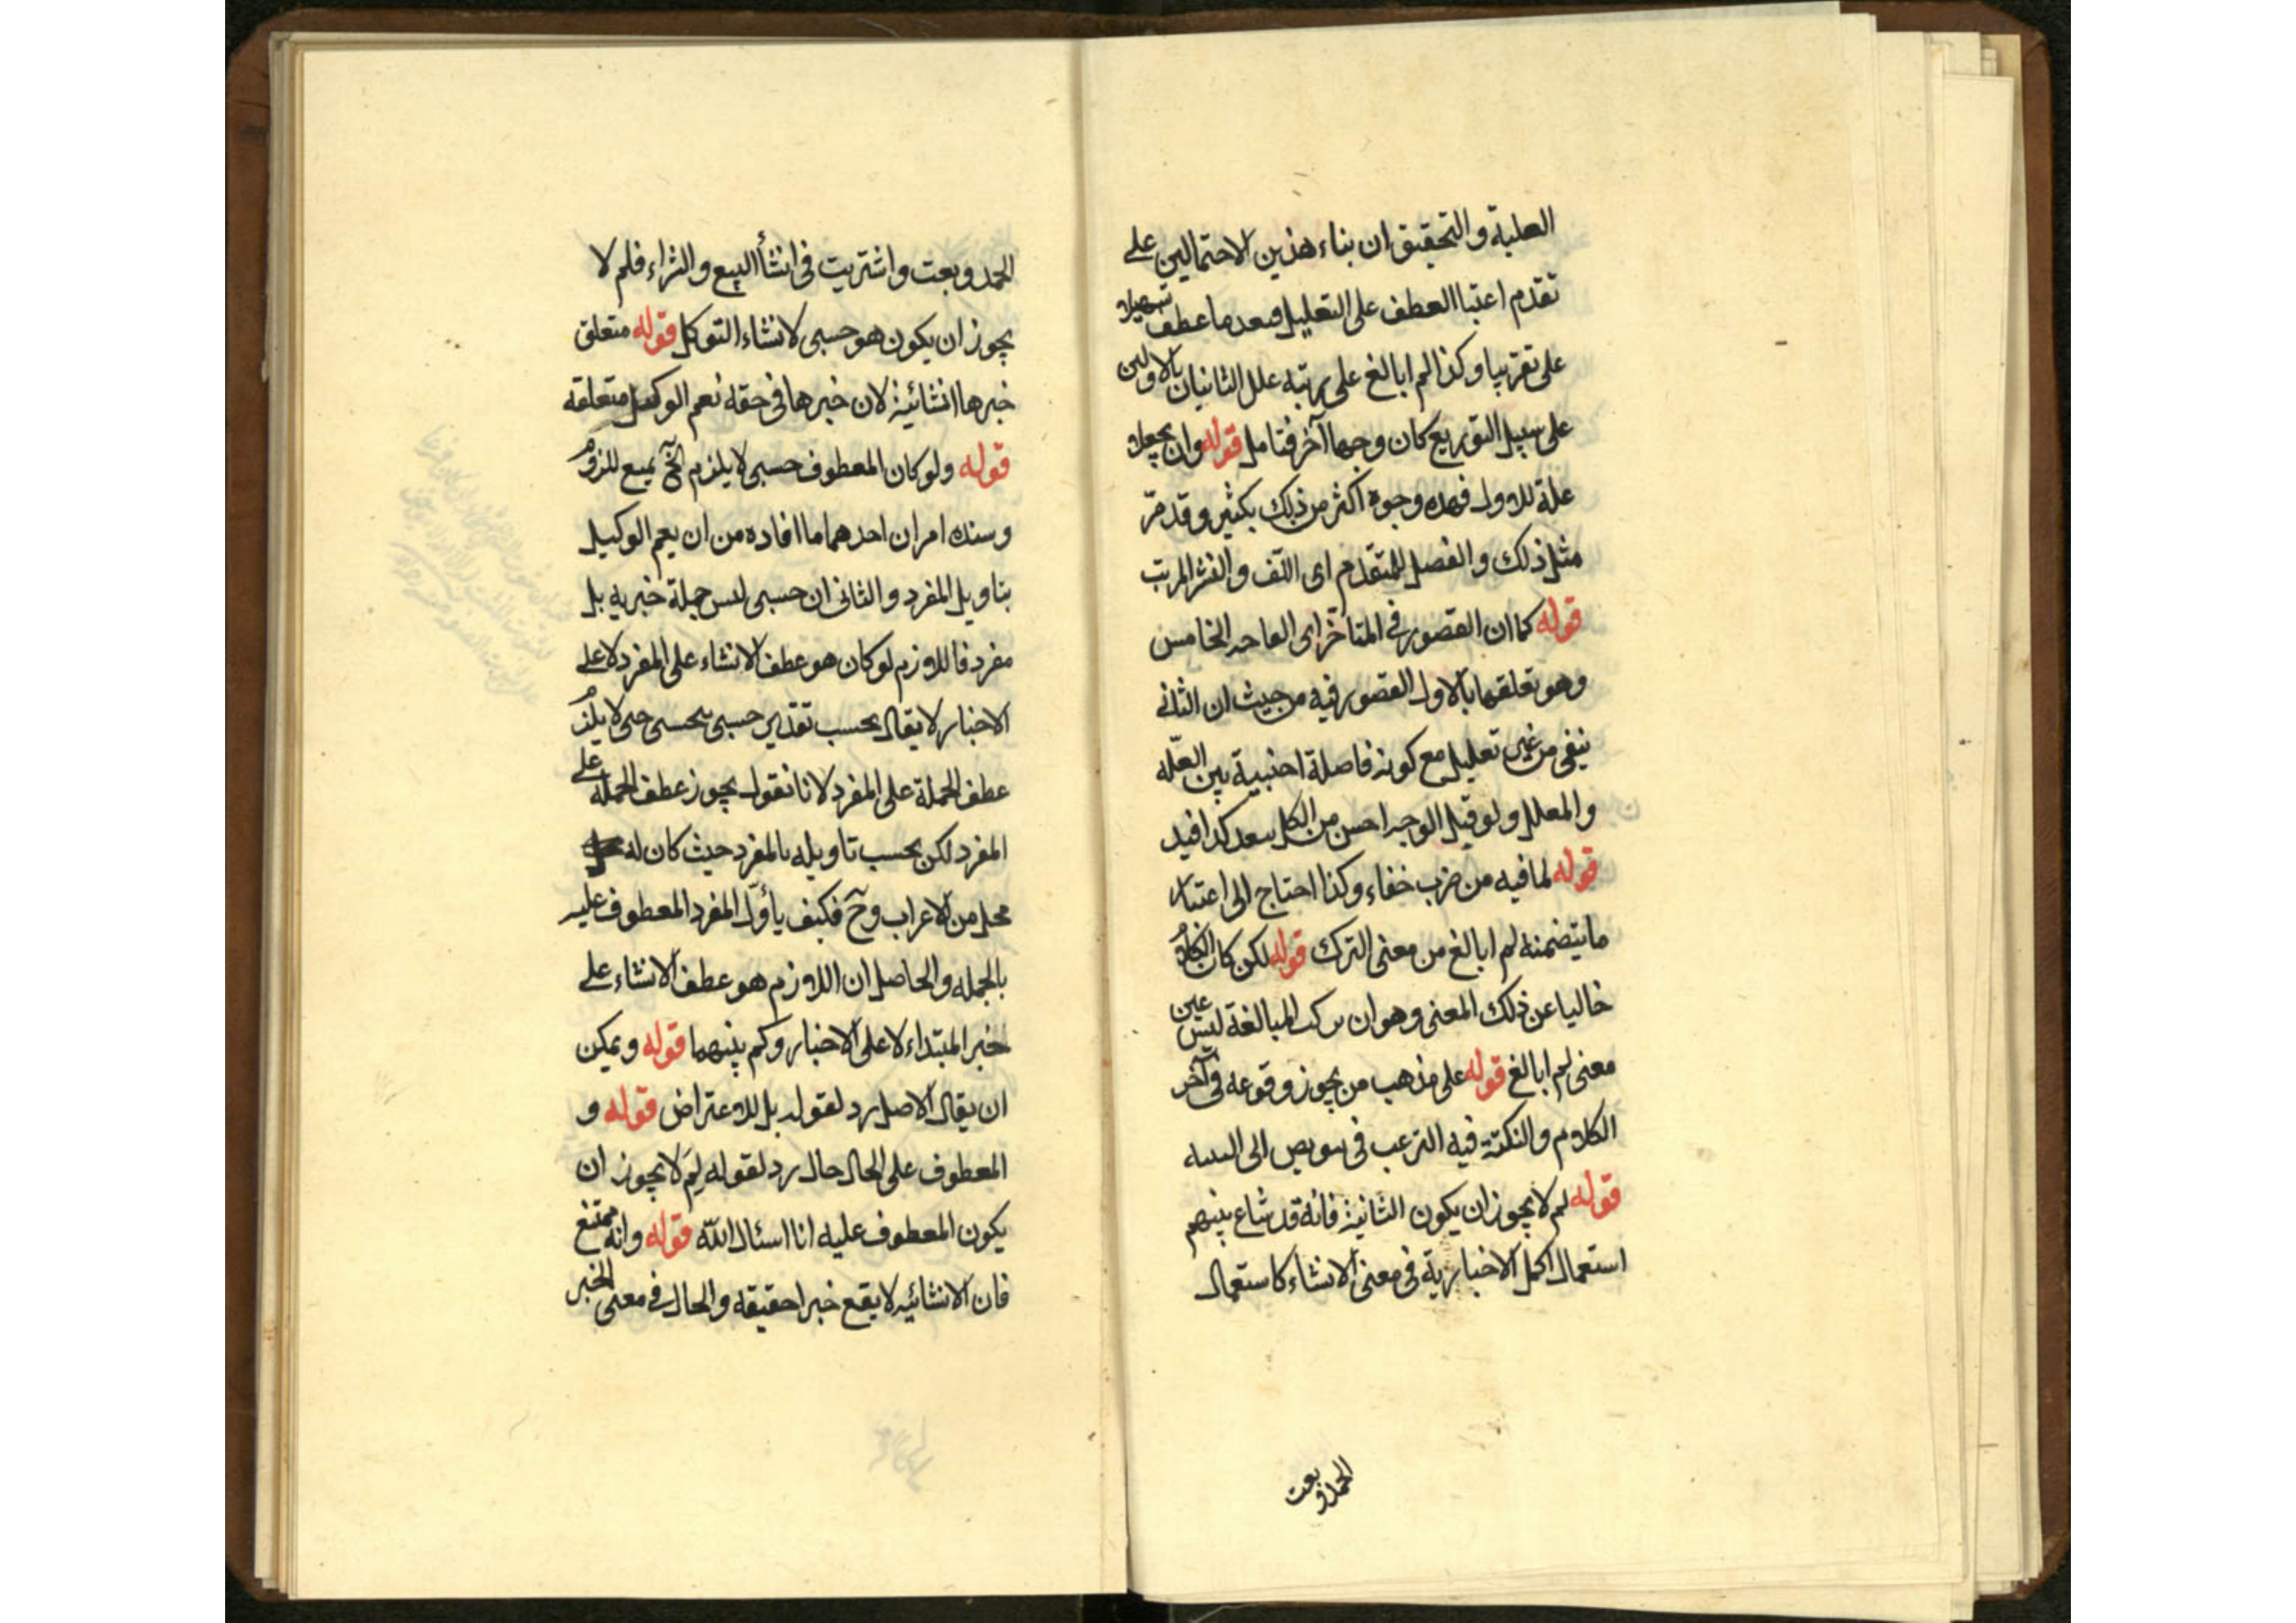 العلية والتحقيق ان بناء هذين الاحتمالين على
تقدم اعتبا العطف على التعليل فبعد ما عطف تسهيلا
على تقريبا وكذا لم ابالغ على يرتبه علل الثانيان بالاولين
على سبيل التوزيع كان وجها آخر فتامل قوله وان يجعلا
علة للاول فهذه وجوه اكثر من ذلك بكثير وقد مرّ
مثل ذلك والفصل للمتقدم اى اللّف والنشر المرتب
قوله كما ان القصور فى المتاخر اى الواحد الخامس
وهو تعلقهما بالاول القصور فيه من حيث ان الثانى
نبقى من غير تعليل مع كونه فاصلة اجنبية بين العلّة
والمعلل ولو قيل الوجه احسن من الكل سعد كذا فيد
قوله لما فيه من ضرب خفاء وكذا احتاج الى اعتبار
ما يتضمنه لم ابالغ من معنى الترك قوله لكن كان الكلام
خاليا عن ذلك المعنى وهو ان ترك المبالغة ليس عين
معنى لم ابالغ قوله على مذهب من يجوز وقوعه فى آخر
الكلام والنكتة فيه الترغب فى الى
قوله لم لا يجوز ان يكون الثانية فانه قد شاع بينهم
استعمال الجمل الاخبارية فى معنى الانشاء كاستعمال
الحمد وبعت
الحمد وبعت واشتريت فى انشأ البيع والشراء فلم لا
يجوز ان يكون هو حسبى لانشاء التوكل قوله متعلق
خبرها انشائية لان خبرها فى حقه نعم الوكيل متعلقه
قوله ولو كان المعطوف حسبى لا يلزم الخ يمنع للزوم
وسنده امران احدهما ما افاده من ان نعم الوكيل
بتاويل المفرد والثانى ان حسبى ليس جملة خبرية بل
مفرد فاللازم لو كان هو عطف الانشاء على المفرد لا على
الاخبار لا يقال بحسب تقدير حسبى بيحسبى حتى لا يلزم
عطف الجملة على المفرد لانا نقول يجوز عطف الجملة على
المفرد لكن بحسب تاويله بالمفرد حيث كان له
محل من الاعراب وح فكيف يأوّل المفرد المعطوف عليه
بالجمله والحاصل ان اللازم هو عطف الانشاء على
خبر المبتداء لا على الاخبار وكم بينهما قوله ويمكن
ان يقال الاصل رد لقوله بل للاعتراض قوله و
المعطوف على الحال حال رد لقوله لِمَ لا يجوز ان
يكون المعطوف عليه انا اسئال اللّه قوله وانه ممتنع
فان الانشائيه لا يقع خبرا حقيقه والحال فى معنى الخبر